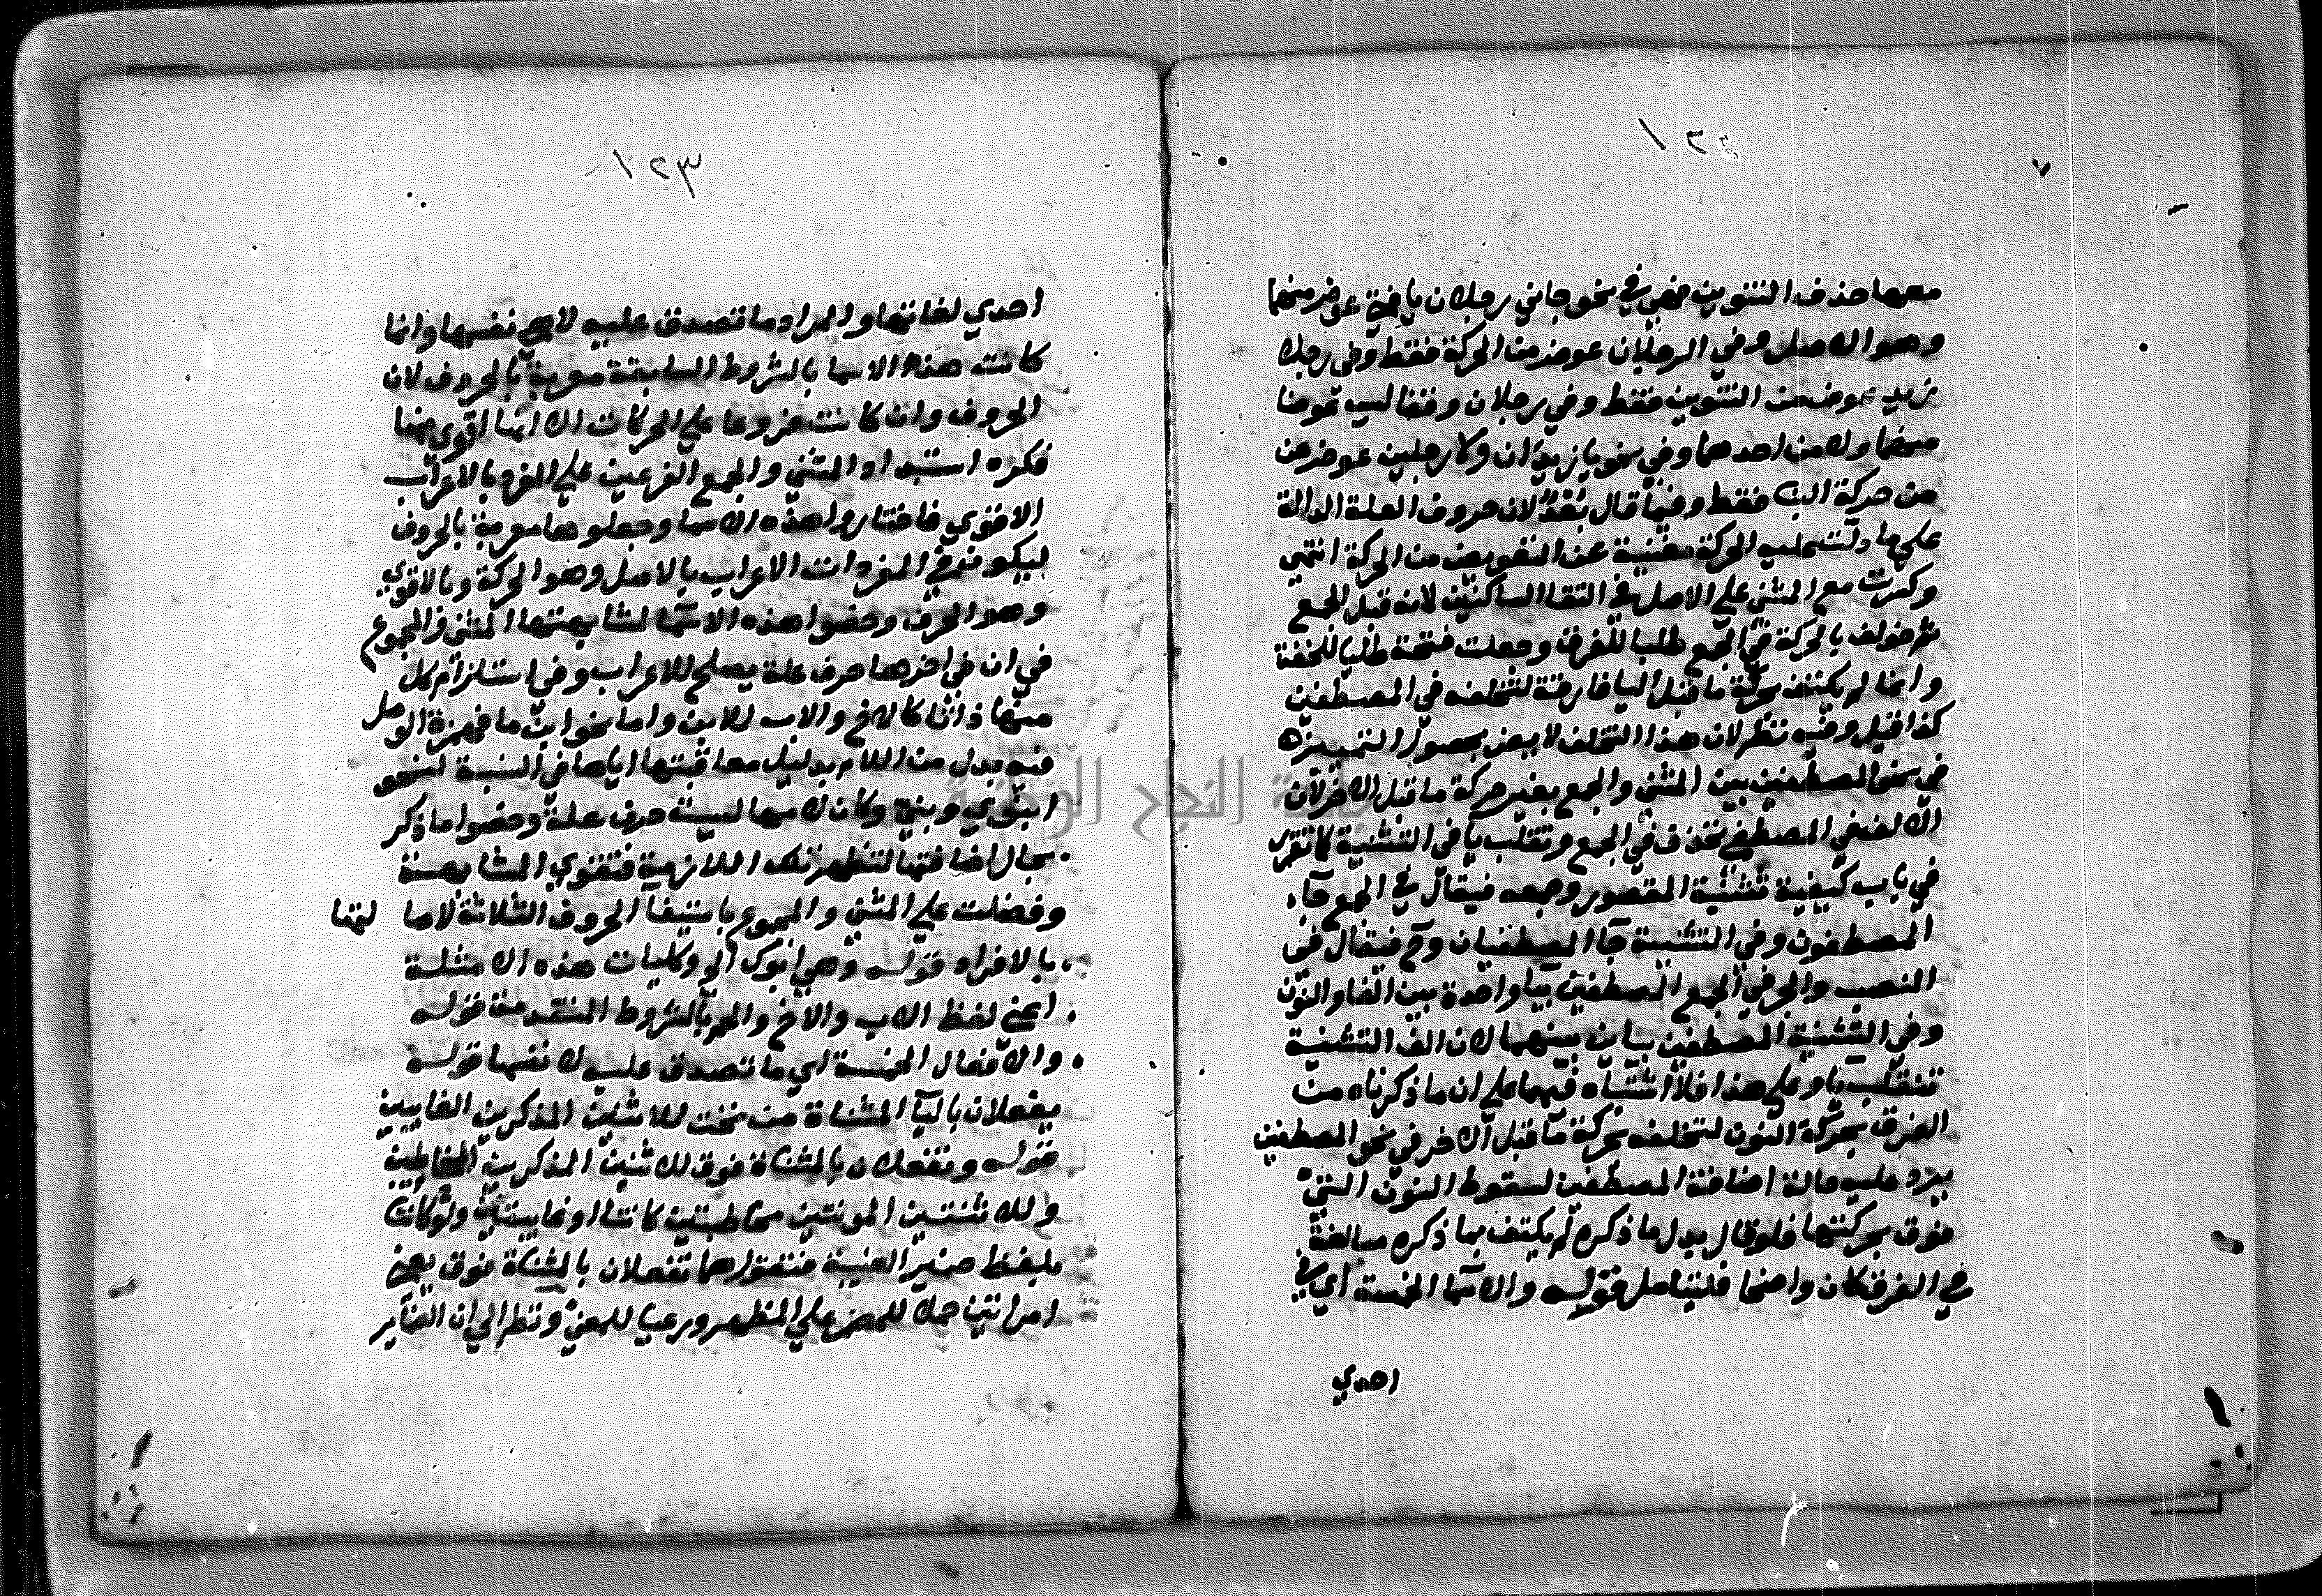 معهما حذف التنوين فهي في نحو جاني رجلان يا فتى عوض منهما
وهو الاصل وفي الرجلان عوض من الحركة فقط وفي رجلا
زيد عوض من التنوين فقط وفي رجلان وقفا ليست عوضا
منهما ولا من احدهما وفي نحو يا زيدان ولا رجلين عوض من
من حركة البنا فقط وفيما قال بعد لان حروف العلة الدالة
على ما دلت عليه الحركة مغنية عن التعويض من الحركة انتهى
وكسرت مع المثنى على الاصل في التقا الساكنين لانه قبل الجمع
ثم خولف بالحركة في الجمع طلبا للفرق وجعلت فتحة طلبا للخفة
وانما لم يكتف بحركة ما قبل اليا فارقة لتخلفه في المصطفين
كذا قيل وفيه نظر لان هذا التخلف لا يضر بحصول التمييز
في نحو المصطفين بين المثنى والجمع بغير حركة ما قبل الاخر لان
الالف في المصطفى تحذف في الجمع وتقلب يا في التثنية كما تقرر
في باب كيفية تثنية المقصور وجمعه فيقال في الجمع جاء
المصطفون وفي التثنية جا المصطفيان وح فيقال في
النصب والجر في الجمع المصطفين بيا واحدة بين الفا والنون
وفي التثنية المصطفيين بياين بينهما لان الف التثنية
تنقلب يا وعلى هذا فلا اشتباه فيهما على ان ما ذكرناه من
الفرق بحركة النون لتخلفه بحركة ما قبل الاخر في نحو المصطفين
يرد عليه حالة اضافة المصطفين لسقوط النون التي
فرق بحركتها فلو قال بدل ما ذكره لم يكتف بما ذكره مبالغة
في الفرق كان واضحا فليتامل قوله والاسما الخمسة اي في
احدي
١٢٣
احدي لغاتها والمراد ما تصدق عليه لا هي نفسها وانما
كانت هذه الاسما بالشروط السابقة معربة بالحروف لان
الحروف وان كانت فروعا على الحركات الا انها اقوى منها
فكره استبداد المثنى والجمع الفرعين على المفرد بالاعراب
الاقوي فاختاروا هذه الاسما وجعلوها معربة بالحروف
ليكون في المفردات الاعراب بالاصل وهو الحركة وبالاقوي
وهو الحرف وخصوا هذه الاسما لمشابهتها المثنى والمجموع
في ان في اخرها حرف علة يصلح للاعراب وفي استلزام كل
منها ذاتا كالاخ والاب للابن واما نحو ابن ما فهمزة الوصل
فيه بدل من اللام بدليل معاقبتها اياها في النسبة لنحو
ابنوي وبني وكان لامها ليست حرف علة وخصوا ما ذكر
بحال اضافتها لتظهر تلك اللازمية فتقوي المشابهة
وفضلت على المثنى والمجموع باستيفا الحروف الثلاثة لاصا لتها
بالافراد قوله وهي ابوك الي وكليات هذه الامثلة
اعني لفظ الاب والاخ والحم بالشروط المتقدمة قوله
والافعال الخمسة اي ما تصدق عليه لا نفسها قوله
يفعلان باليا المثناة من تحت للاثنين المذكرين الغايبين
قوله وتفعلان بالمثناة فوق للاثنين المذكرين المخاطبين
وللاثنتين المونثتين مخاطبتين كانتا او غايبتين ولو كانت
بلفظ ضمير الغيبة فتقول هما تفعلان بالمثناة فوق يعني
امراتين حملا للمضمر على المظهر ورعيا للمعنى ونظر الي ان الضماير